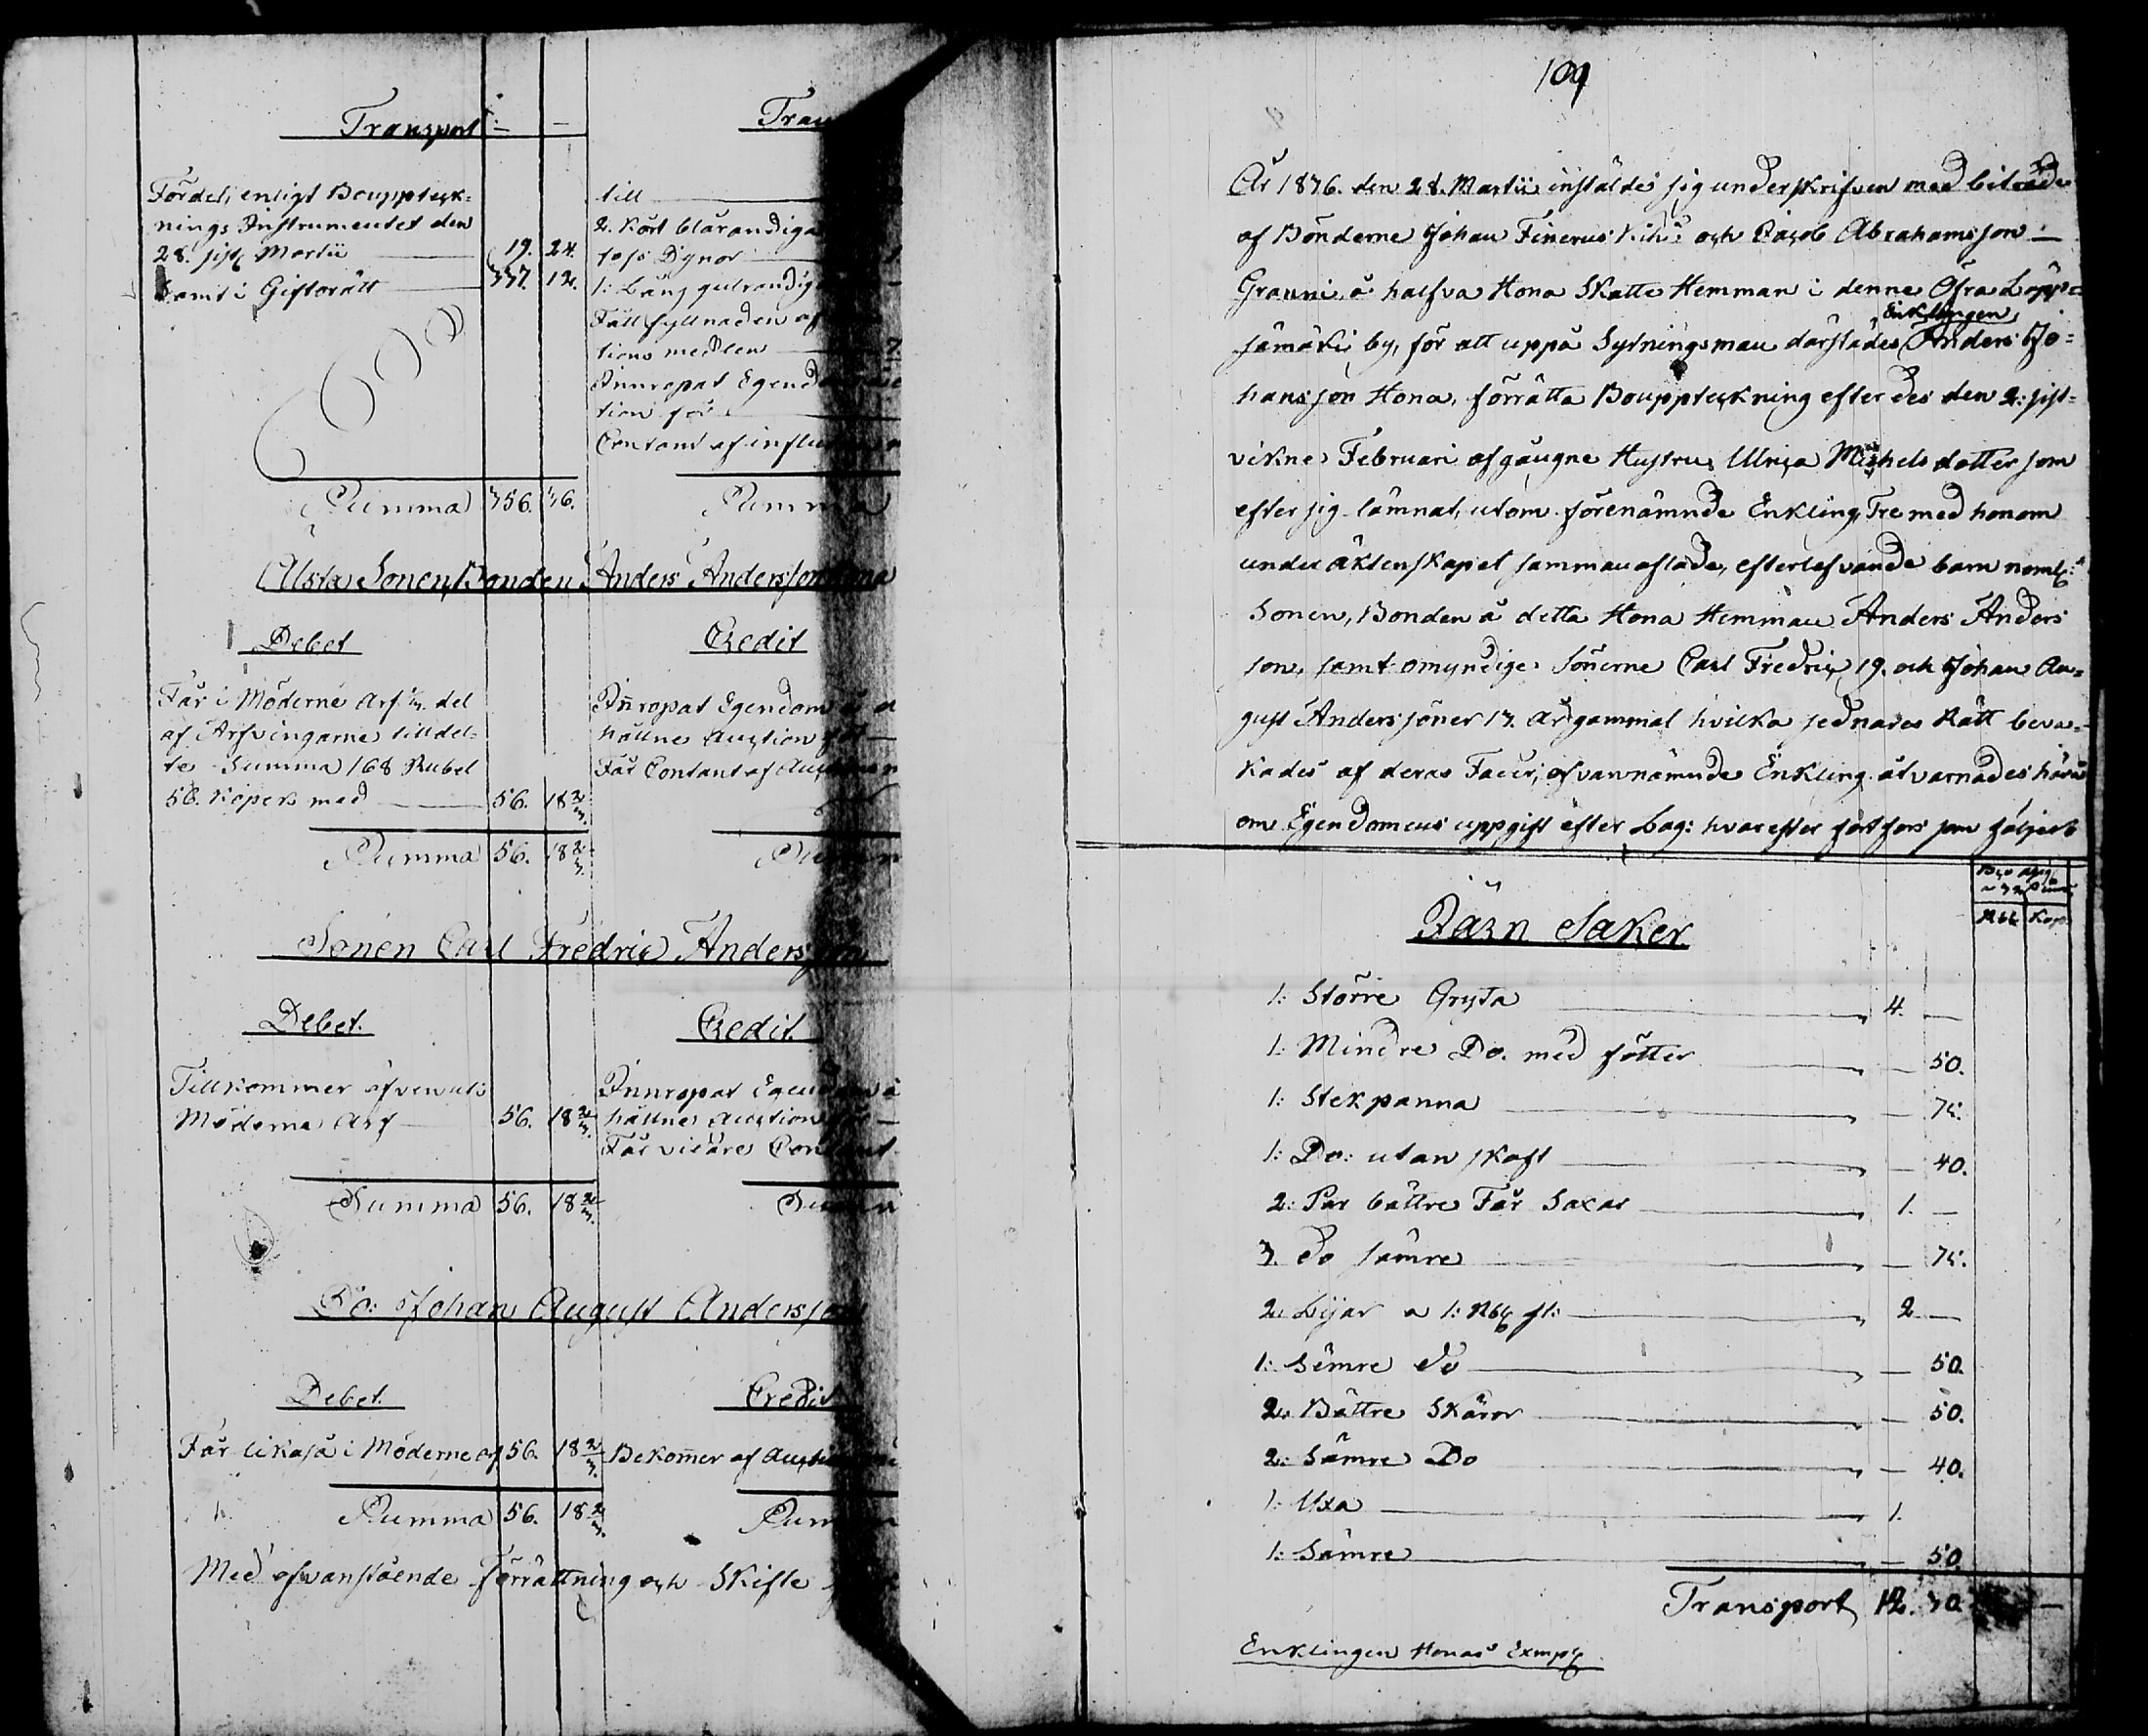 Transport:
Fördel, enligt Boupptek:
nings Instrumentet den
28. sistl Martii 19. 24.
samt i Giftorätt 337. 12.
Summa 356. 36.
Tran
till
2. Kort blårandiga
sofs Dynor
1: Lång gulrandig
Fall fyllnaden af
tions medlen
Innropat Egend
tion för
Contant af influ
Summa
Älsta Sonen, Bonden Anders Andersson Hona
Debet
Credit
Får i Möderne Arf 1/3 del
af Arfvingarne tilldel=
te Summa 168 Rubel
56. Kopek med 56. 18 2/3.
Summa 56. 18 2/3.
Innropat Egendom å
hållne Auction för
Får Contant af Auctions
Summ
Sonen Carl Fredric Andersson
Debet.
Credit.
Tillkommer äfvenuti
Möderne Arf 56. 18 2/3.
Summa 56. 18 2/3.
Innropat Egendom å
hållne Auction för
Får vidare Contant
Summa
Do: Johan August Andersson
Debet.
Credit
Får likaså i Möderne arf 56. 18 2/3.
Summa 56. 18 2/3.
Bekom̄er af Auction
Summ
Med ofvanstående Förrättning och Skifte
109
År 1836. den 28. Martii instälde sig underskrifven med biträde
af Bönderne Johan Finerus Kihu och Jacob Abrahamsson
Granni, å halfva Hona Skatte Hemman i denne Öfra Läpp=
Enklingen
sämäki by, för att uppå Sytningsman därstädes Anders Jo=
hansson Hona, förrätta Bouppteckning efter des den 2: sist=
vikne Februari afgångne Hustru, Ulrica Michels dotter som
efter sig lämnat, utom förenämnde Enkling, Tre med honom
under äktenskapet sammanaflade, efterlefvande barn neml:
Sonen, Bonden å detta Hona Hemman Anders Anders
son, samt omyndige Sönerne Carl Fredric 19. och Johan Au=
gust Anderssöner 13. år gammal hvilka sednares Rätt beva=
kades af deras Fader, ofvannämnde Enkling åtvarnades härå
om Egendomens uppgift efter Lag: hvarefter fortfors som följer
Rbl Kop
Järn Saker
1: Större Gryta 4. —
1: Mindre Do. med fötter — 50.
1: Stekpanna — 75.
1: Do: utan skaft — 40.
2: Par bättre Får Saxar 1. —
3. do sämre — 75.
2. Lijar a 1: Rbl st: 2 —
1: Sämre do — 50.
2. Bättre Skäror — 50.
2: Sämre Do — 40.
1: Uxa 1.
1: Sämre — 50.
Transport 12. 30. —
Enklingen Honas Exmpl.